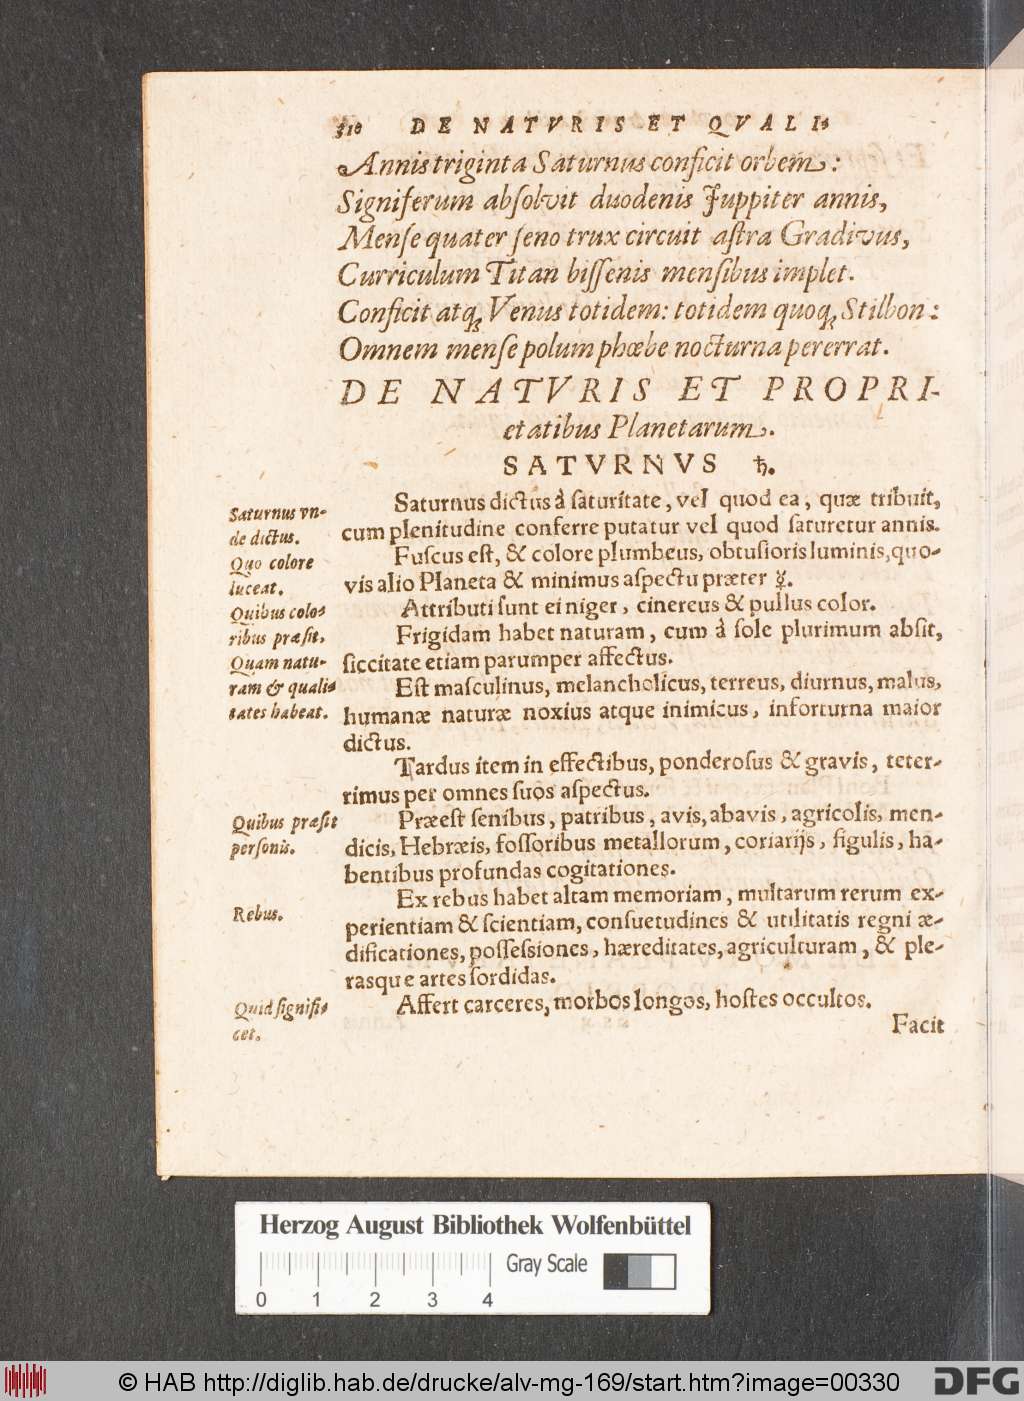 310 DE NATVRIS ET QVALI-
Annis triginta Saturnus conficit orbem:
Signiferum absolvit duodenis Juppiter annis,
Mense quater seno trux circuit astra Gradivus,
Curriculum Titan bissenis mensibus implet.
Conficit atq; Venus totidem: totidem quoq; Stilbon:
Omnem mense polum phœbe nocturna pererrat.
DE NATVRIS ET PROPRI-
etatibus Planetarum.
SATVRNVS ♄.
Saturnus vn-
de dictus.
Saturnus dictus à saturitate, vel quod ea, quæ tribuit,
cum plenitudine conferre putatur vel quod saturetur annis.
Quo colore
luceat.
Fuscus est, & colore plumbeus, obtusioris luminis, quo-
vis alio Planeta & minimus aspectu præter ☿.
Quibus colo-
ribus præsit.
Attributi sunt ei niger, cinereus & pullus color.
Quam natu-
ram & quali-
tates habeat.
Frigidam habet naturam, cum à sole plurimum absit,
siccitate etiam parumper affectus.
Est masculinus, melancholicus, terreus, diurnus, malus,
humanæ naturæ noxius atque inimicus, inforturna maior
dictus.
Tardus item in effectibus, ponderosus & gravis, teter-
rimus per omnes suos aspectus.
Quibus præsit
personis.
Præest senibus, patribus, avis, abavis, agricolis, men-
dicis, Hebræis, fossoribus metallorum, coriarijs, figulis, ha-
bentibus profundas cogitationes.
Rebus.
Ex rebus habet altam memoriam, multarum rerum ex-
perientiam & scientiam, consuetudines & utilitatis regni æ-
dificationes, possessiones, hæreditates, agriculturam, & ple-
rasque artes sordidas.
Quid signifi-
cet.
Affert carceres, morbos longos, hostes occultos.
Facit
Herzog August Bibliothek Wolfenbüttel
Gray Scale
0 1 2 3 4
© HAB http://diglib.hab.de/drucke/alv-mg-169/start.htm?image=00330
DFG